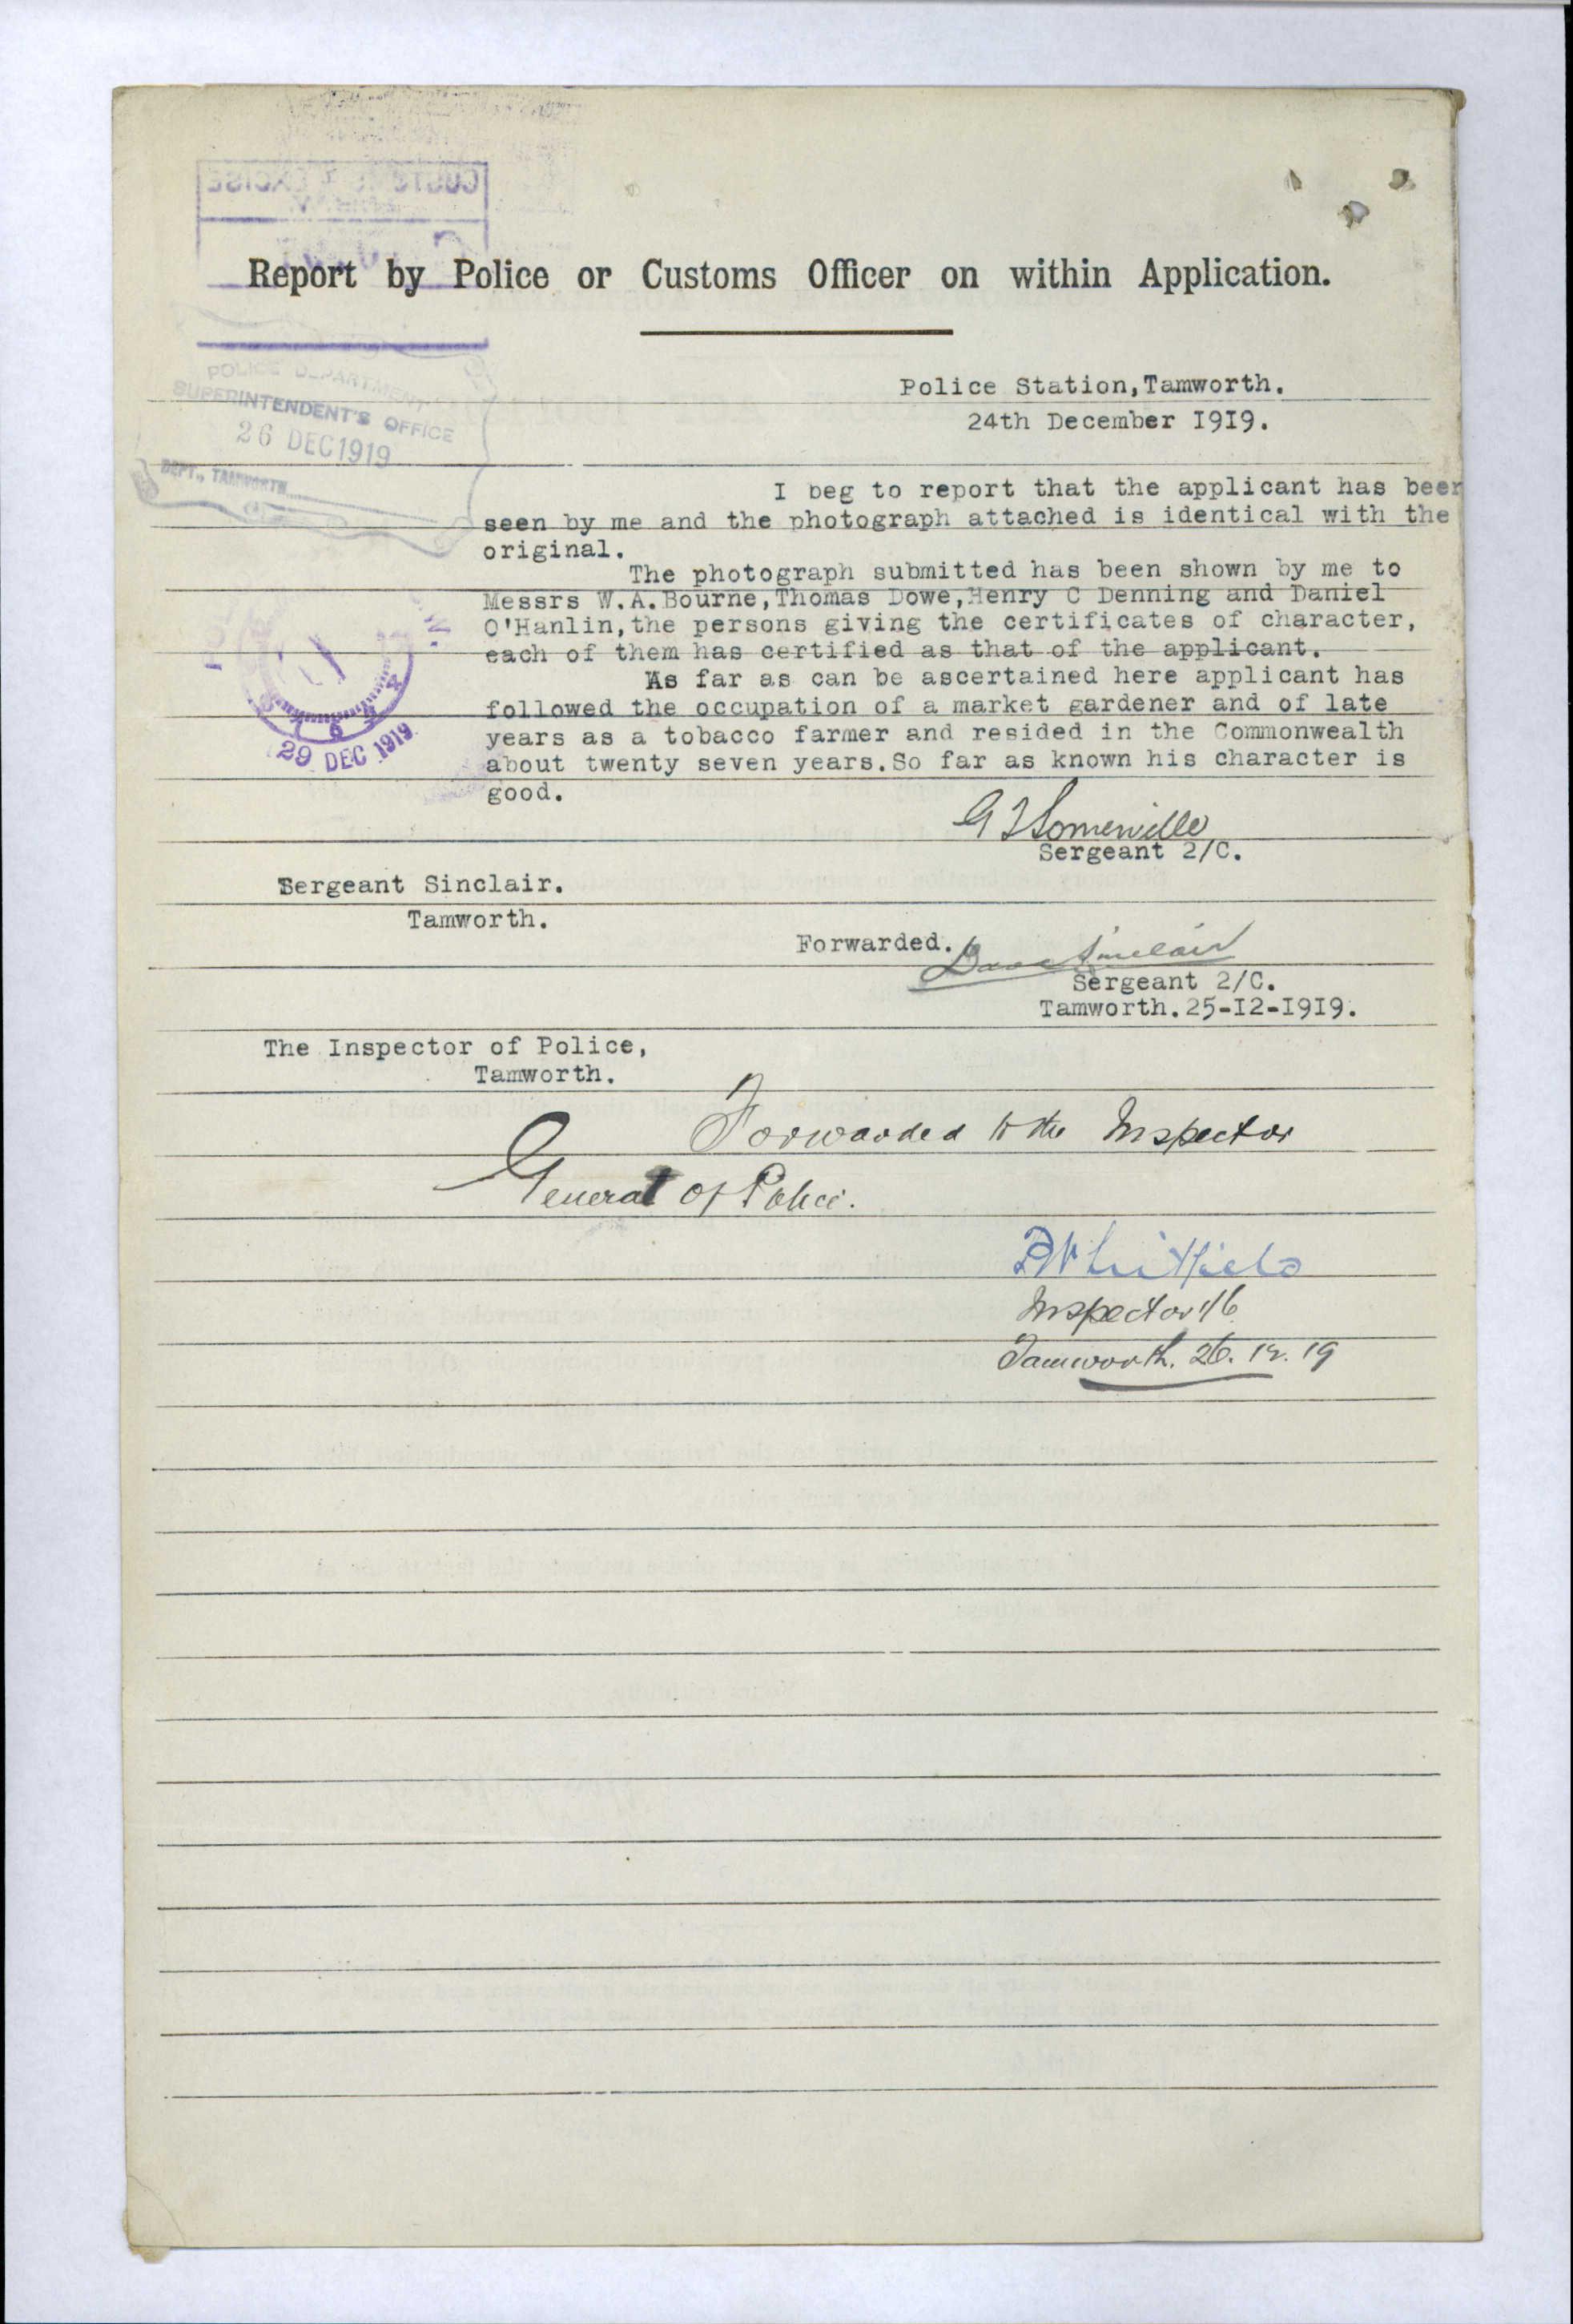 CUSTOMS & EXCISE
Report by Police or Customs Officer on within Application.
POLICE DEPARTMENT
SUPERINTENDENT'S OFFICE
26 DEC 1919
DEPT., TAMWORTH
Police Station,Tamworth.
24th December I9I9.
I beg to report that the applicant has been
seen by me and the photograph attached is identical with the
original.
The photograph submitted has been shown by me to
Messrs W.A.Bourne,Thomas Dowe,Henry C Denning and Daniel
O'Hanlin,the persons giving the certificates of character,
each of them has certified as that of the applicant.
As far as can be ascertained here applicant has
followed the occupation of a market gardener and of late
years as a tobacco farmer and resided in the Commonwealth
about twenty seven years.So far as known his character is
good.
29 DEC 1919
Somerville
Sergeant 2/C.
Sergeant Sinclair.
Tamworth.
Forwarded.
Sinclair
Sergeant 2/C.
Tamworth.25-I2-I9I9.
The Inspector of Police,
Tamworth.
Forwarded to the Inspector
General of Police.
Whitfield
Inspector
Tamworth. 26. 12. 19